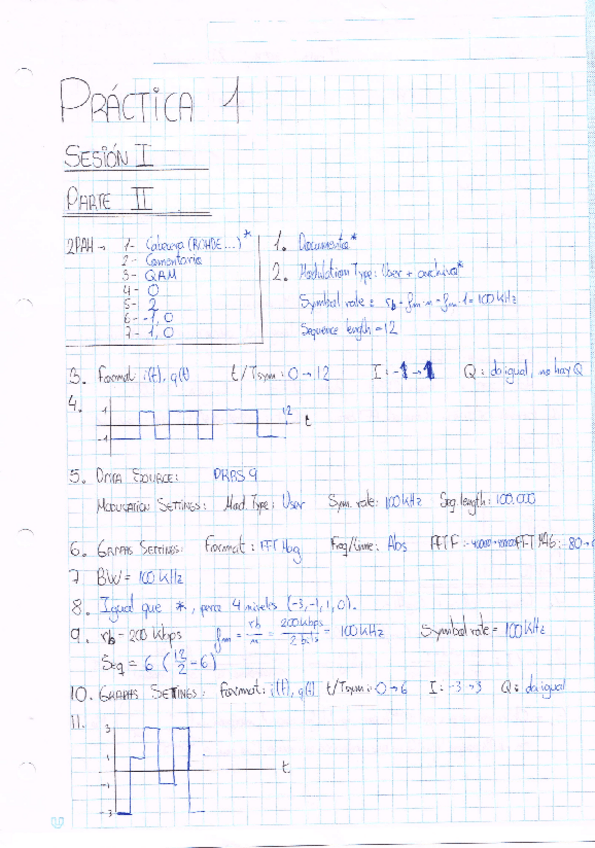 PRÁCTICA 1
SESIÓN I
PARTE II
2PAM → 1- Cabecera (ROHDE...)*
2- Comentario
3- QAM
4- 0
5- 2
6- -1, 0
7- 1, 0
1. Documento*
2. Modulation Type: User + archivo*
Symbol rate: rb = fm·n = fm·1 = 100 kHz
Sequence length = 12
3. Format i(t), q(t) t/Tsym: 0 → 12 I: -1 → 1 Q: da igual, no hay Q
4.
1
-1
12
t
5. DATA SOURCE: PRBS 9
MODULATION SETTINGS: Mod. Type: User Sym. rate: 100 kHz Seq. length: 100.000
6. GRAPHS SETTINGS: Format: FFT Mag Freq/Time: Abs
7. BW = 100 kHz
8. Igual que *, para 4 niveles (-3, -1, 1, 0).
9. rb = 200 kbps fm = rb/n = 200 kbps/2 bits = 100 kHz Symbol rate = 100 kHz
Seq = 6 (12/2 = 6)
10. GRAPHS SETTINGS: Format: i(t), q(t) t/Tsym: 0 → 6 I: -3 → 3 Q: da igual
11.
3
1
-1
-3
t